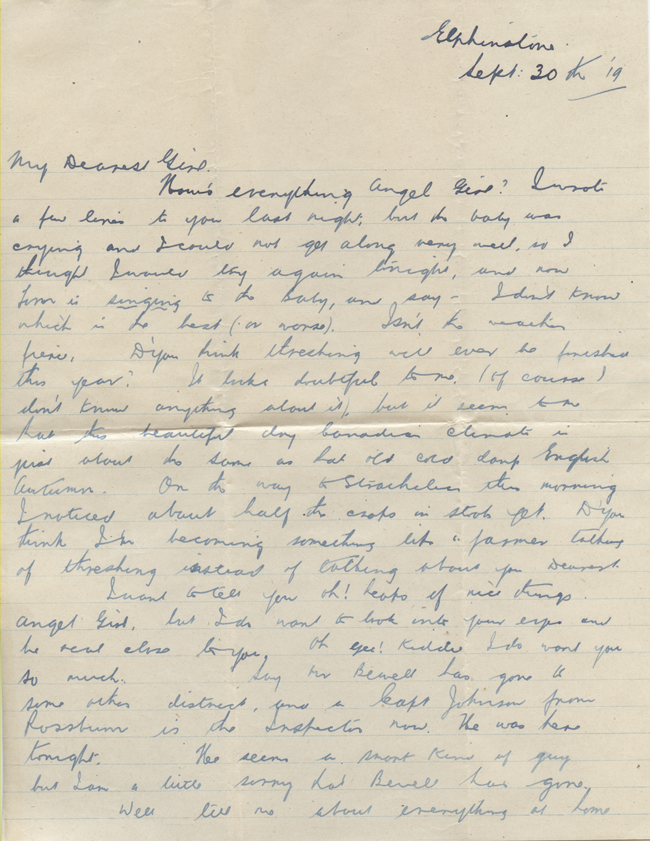 Elphinstone.
Sept: 30th '19
My Dearest Girl.
How's everything Angel Girl? I wrote
a few lines to you last night, but the baby was
crying and I could not get along very well, so I
thought I would try again tonight, and now
is singing to the baby, and say - I don't know
which is the best (or worse). Isn't the weather
fierce, D'you think threshing will ever be finished
this year? It looks doubtful to me, (of course I
don't know anything about it), but it seems to me
that this beautiful dry Canadian climate is
just about the same as that old cold damp English
Autumn. On the way to Strathclair this morning
I noticed about half the crops in stook yet. D'you
think I'm becoming something like a farmer talking
of threshing instead of talking about you Dearest.
I want to tell you oh! heaps of nice things
Angel Girl, but I do want to look into your eyes and
be real close to you, Oh gee! Kiddie I do want you
so much. Say Mr Bewell has gone to
some other district, and a Capt Johnson from
Rossburn is the Inspector now. He was here
tonight. He seems a smart kind of guy
but I am a little sorry that Bewell has gone.
Well tell me about everything at home